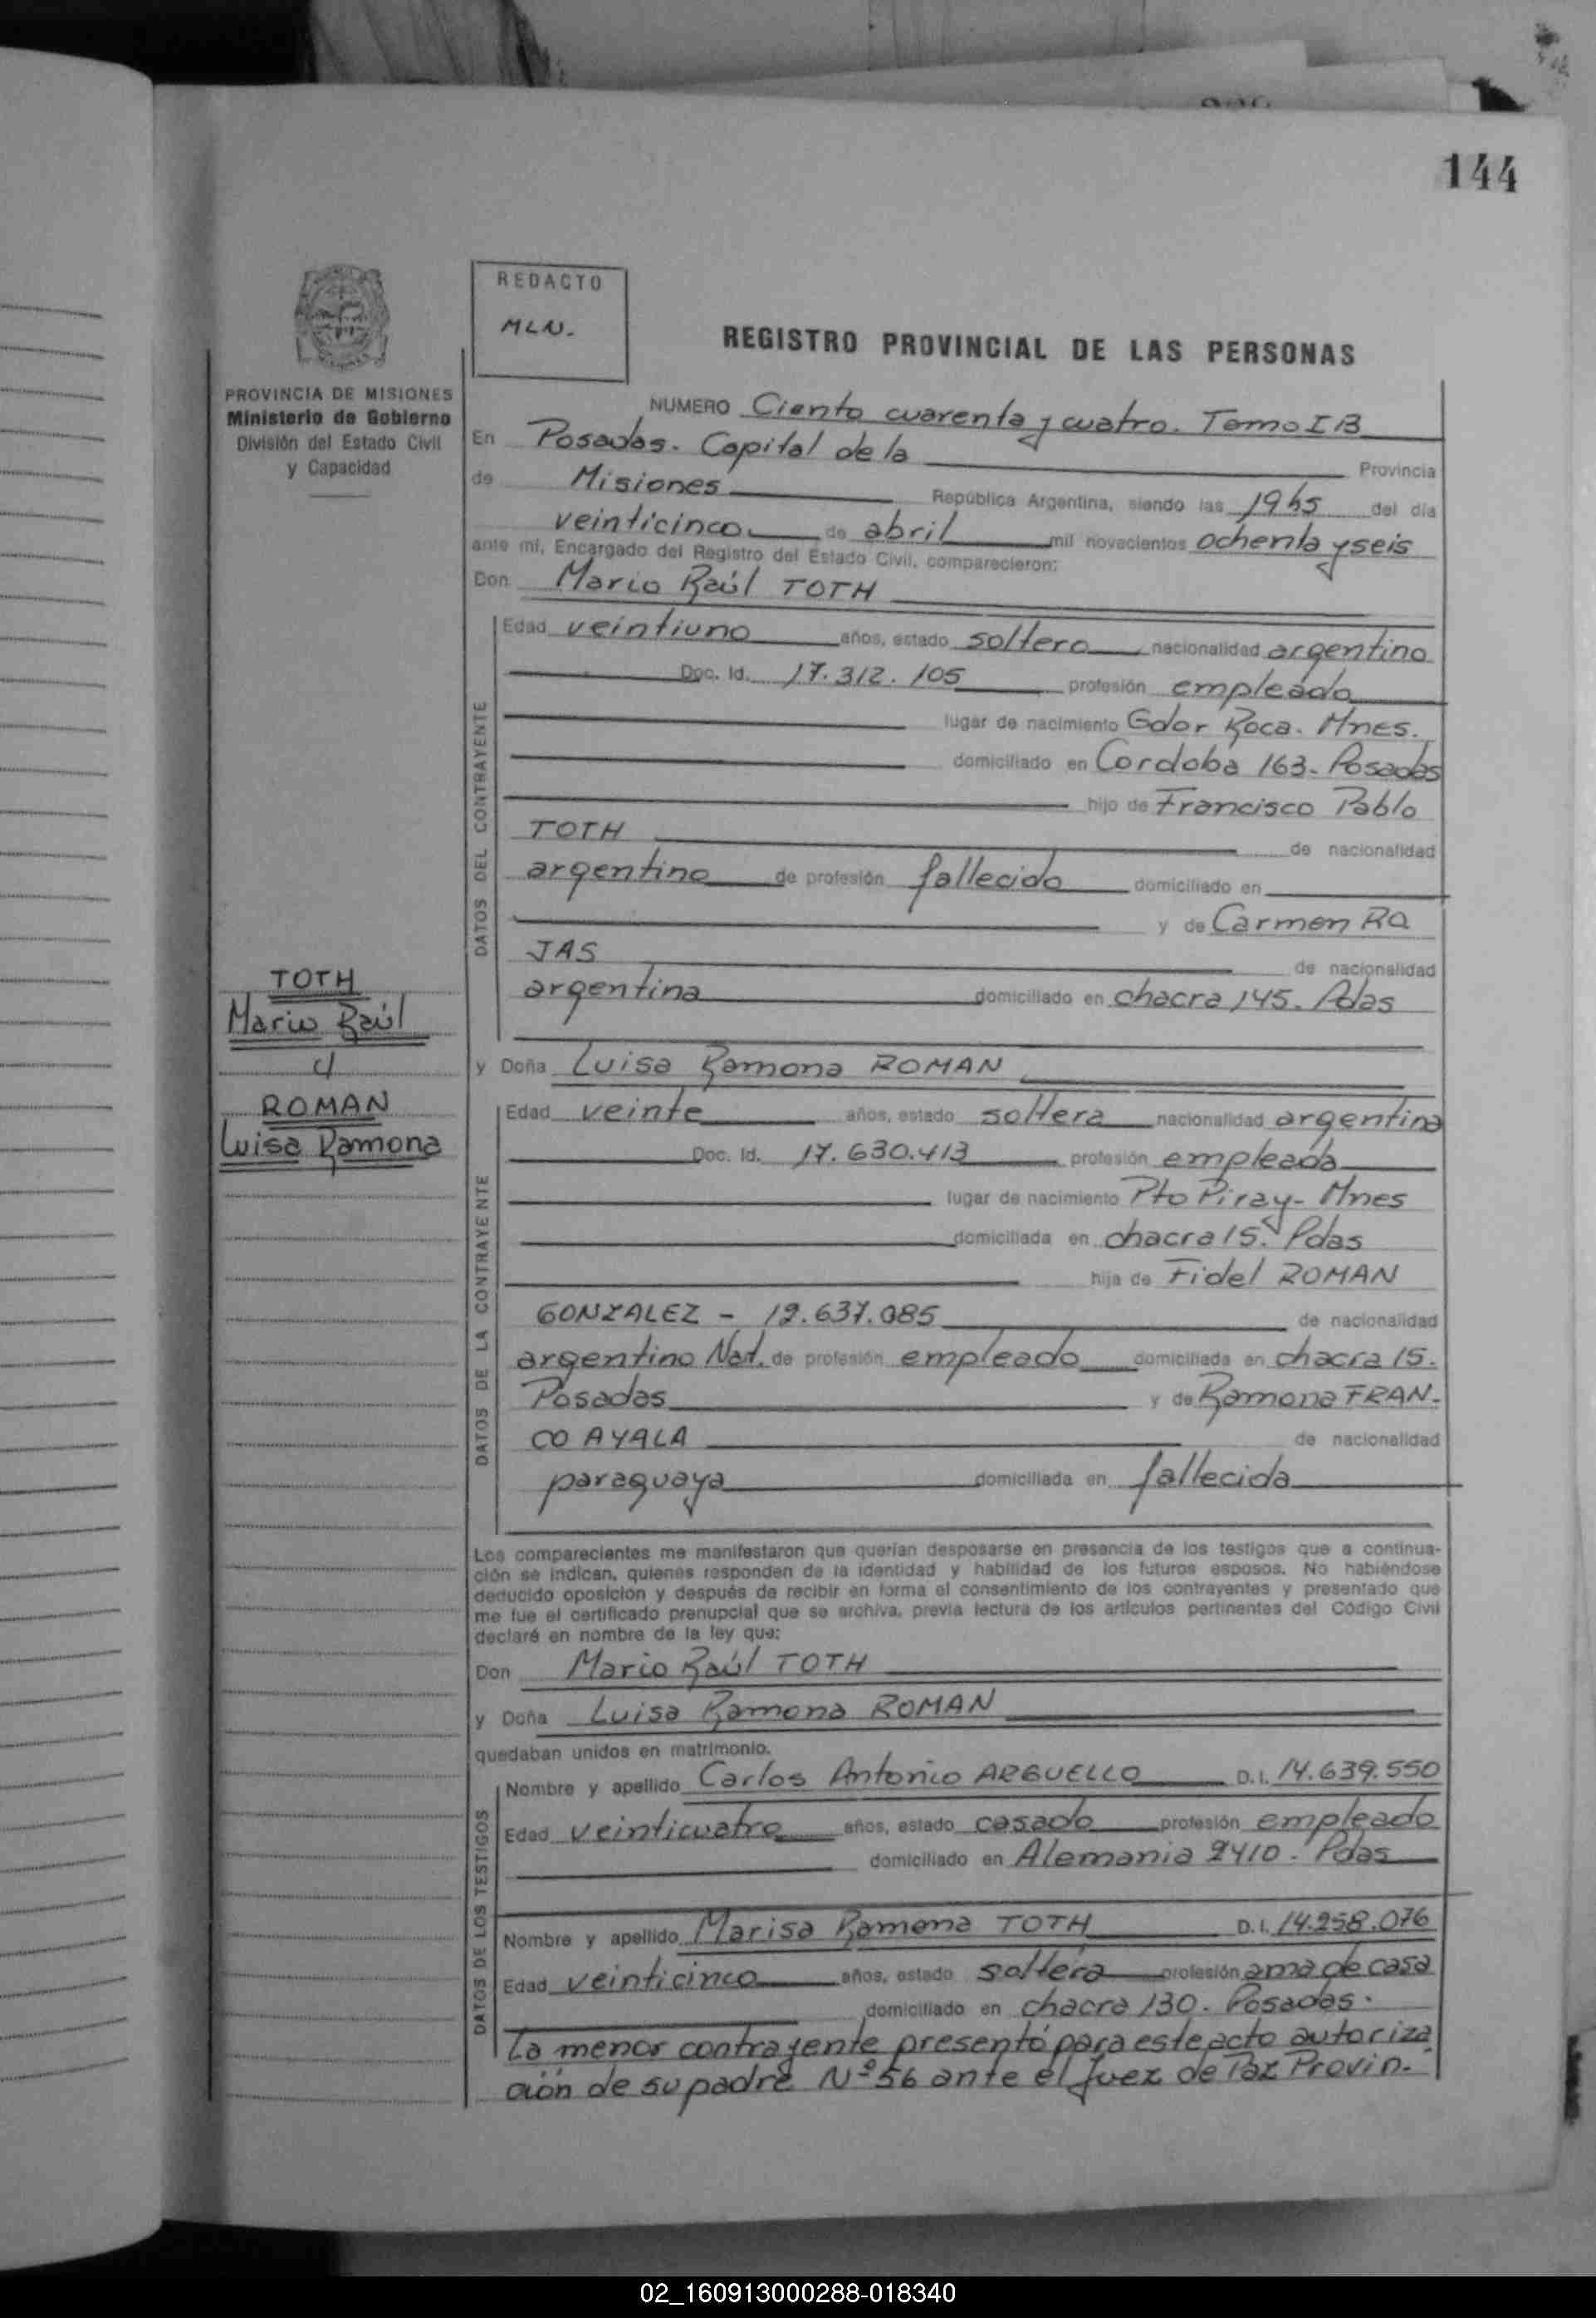 144
REDACTO
MLN.
REGISTRO PROVINCIAL DE LAS PERSONAS
PROVINCIA DE MISIONES
Ministerio de Gobierno
División del Estado Civil
y Capacidad
NUMERO Ciento cuarenta y cuatro. Tomo I B
En Posadas. Capital de la Provincia
de Misiones República Argentina, siendo las 1945 del día
veinticinco de abril mil novecientos ochenta y seis
ante mí, Encargado del Registro del Estado Civil, comparecieron:
Don Mario Raúl TOTH
DATOS DEL CONTRAYENTE
Edad veintiuno años, estado soltero nacionalidad argentino
Doc. Id. 17.312.105 profesión empleado
lugar de nacimiento Gdor Roca. Mnes.
domiciliado en Cordoba 163. Posadas
hijo de Francisco Pablo
TOTH de nacionalidad
argentino de profesión fallecido domiciliado en
y de Carmen RO
JAS de nacionalidad
argentina domiciliado en chacra 145. Pdas
TOTH
Mario Raúl
y
ROMAN
Luisa Ramona
y Doña Luisa Ramona ROMAN
DATOS DE LA CONTRAYENTE
Edad veinte años, estado soltera nacionalidad argentina
Doc. Id. 17.630.413 profesión empleada
lugar de nacimiento Pto Piray- Mnes
domiciliada en chacra 15. Pdas
hija de Fidel ROMAN
GONZALEZ - 12.637.085 de nacionalidad
argentino Nat. de profesión empleado domiciliada en chacra 15.
Posadas y de Ramona FRAN-
CO AYALA de nacionalidad
paraguaya domiciliada en fallecida
Los comparecientes me manifestaron que querían desposarse en presencia de los testigos que a continua-
ción se indican, quienes responden de la identidad y habilidad de los futuros esposos. No habiéndose
deducido oposición y después de recibir en forma el consentimiento de los contrayentes y presentado que
me fue el certificado prenupcial que se archiva, previa lectura de los artículos pertinentes del Código Civil
declaré en nombre de la ley que:
Don Mario Raúl TOTH
y Doña Luisa Ramona ROMAN
quedaban unidos en matrimonio.
DATOS DE LOS TESTIGOS
Nombre y apellido Carlos Antonio ARGUELLO D.I. 14.639.550
Edad veinticuatro años, estado casado profesión empleado
domiciliado en Alemania 2410. Pdas
Nombre y apellido Marisa Ramona TOTH D.I. 14.258.076
Edad veinticinco años, estado soltera profesión ama de casa
domiciliado en chacra 130. Posadas.
La menor contrayente presentó para este acto autoriza
ción de su padre Nº 56 ante el Juez de Paz Provin.
02_160913000288-018340